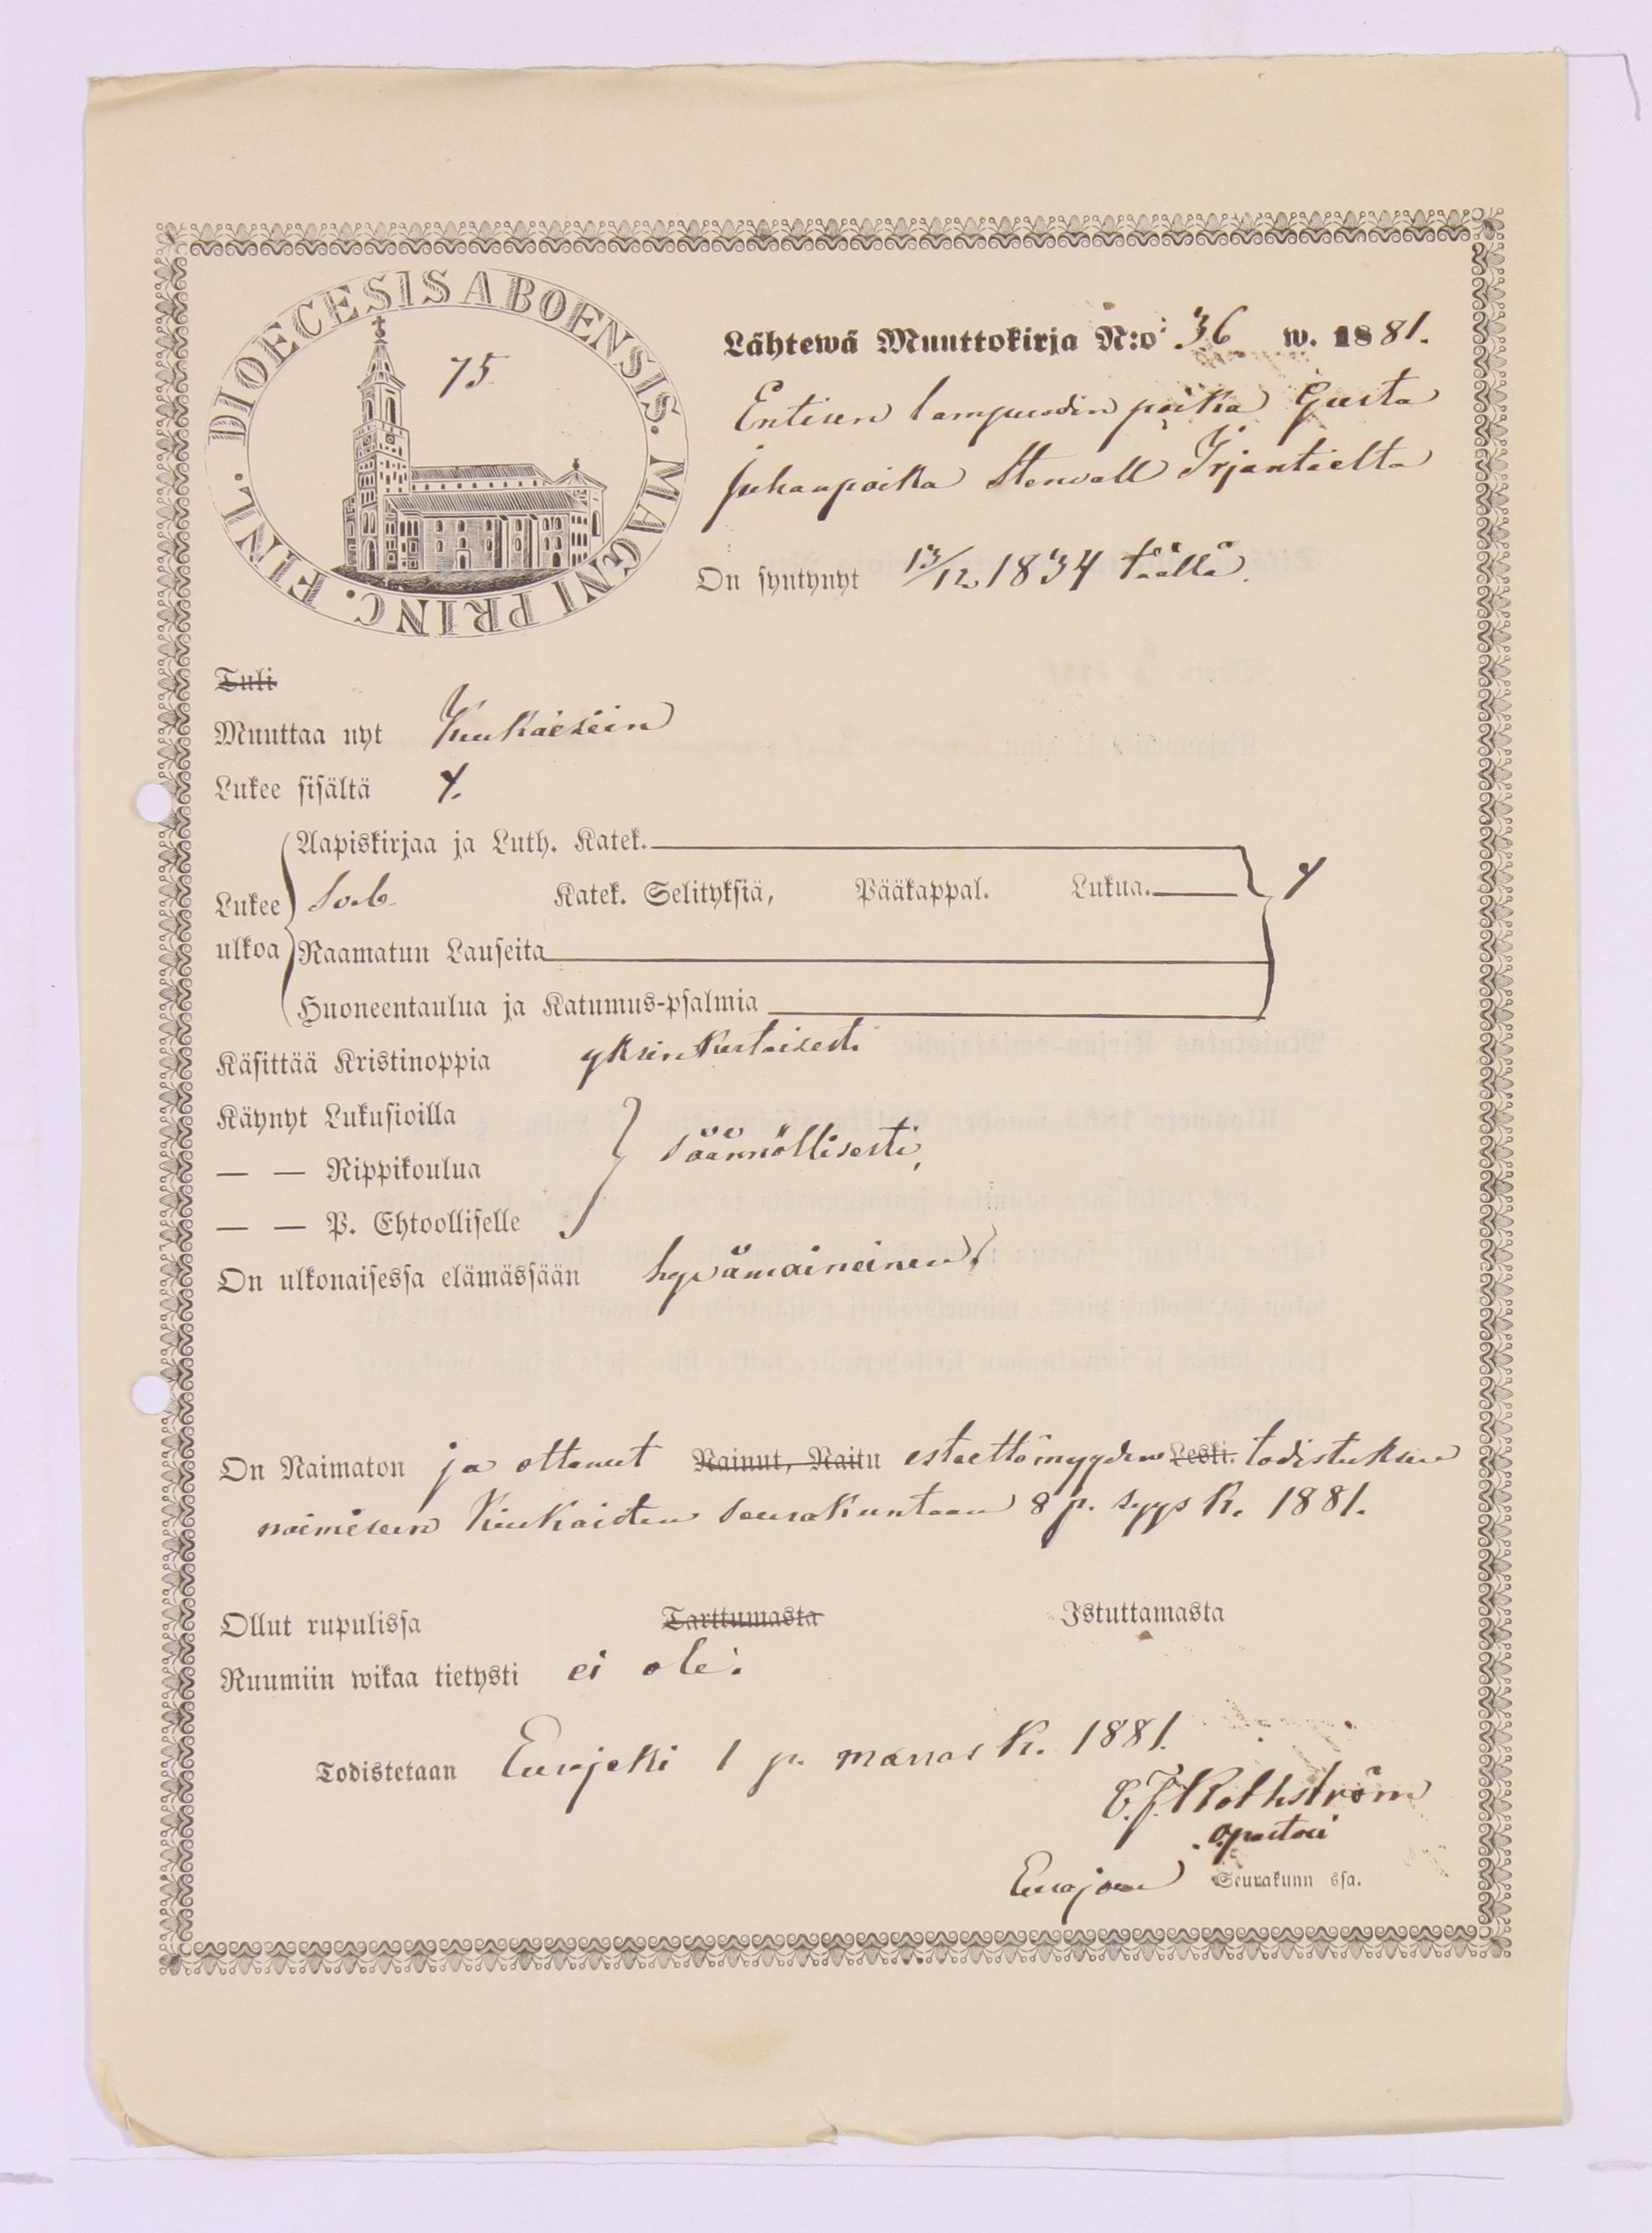 DIOECESIS ABOENSIS. MAGNI PRINC. FINL.
75
Lähtewä Muuttokirja N:o 36 w. 1881.
Entisen lampuodin poika Gusta
Juhanpoika Stenvall Irjantielta
On syntynyt 13/12 1834 täällä.
Tuli
Muuttaa nyt Kiukaisiin
Lukee sisältä y.
Aapiskirjaa ja Luth. Katek.
Lukee Katek. Selityksiä, Pääkappal. Lukua. y
ulkoa Raamatun Lauseita
Huoneentaulua ja Katumus-psalmia
Käsittää Kristinoppia yksinkertaisesti
Käynyt Lukusioilla
— — Rippikoulua säännöllisesti,
— — P. Ehtoolliselle
On ulkonaisessa elämässään hyvämaineinen.
On Naimaton ja ottanut Nainut, Naitu esteettömyyden Leski. todistuksen
naimiseen Kiukaisten seurakuntaan 8 p. syysk. 1881.
Ollut rupulissa Tarttumasta Istuttamasta
Ruumiin wikaa tietysti ei ole.
Todistetaan Eurajoki 1 p. marrask. 1881.
Rothström
Eurajoen Seurakunn ssa.